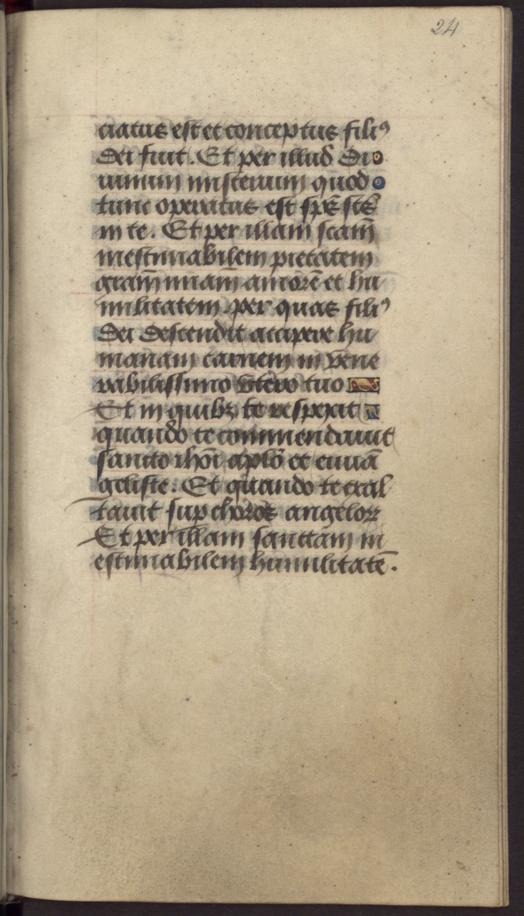 24
ciatus est et conceptus fili⁹
dei fuit. Et per illud di
uinum misterium quod
tunc operatus est sp̄s sc̄s
in te. Et per illam sc̄am̄
inestimabilem pietatem
gram̄ miam̄ amorē et hu
militatem per quas fili⁹
dei descendit accipere hu
manam carnem in vene
rabilissimo vtero tuo
Et in quibꝫ te respexit
quando te commendauit
sancto ioh̄i ap̄lo et euuā
geliste. Et quando te exal
tauit sup choros angeloꝝ
Et per illam sanctam in
estimabilem humilitatē.